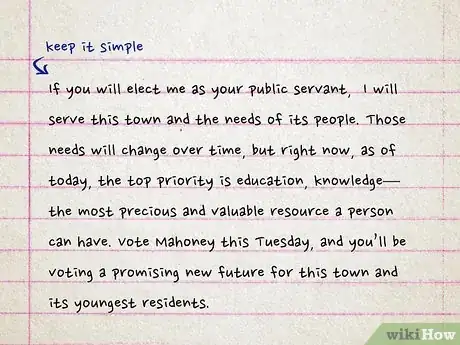 keep it simple
If you will elect me as your public servant, I will
serve this town and the needs of its people. Those
needs will change over time, but right now, as of
today, the top priority is education, knowledge—
the most precious and valuable resource a person
can have. Vote Mahoney this Tuesday, and you'll be
voting a promising new future for this town and
its youngest residents.
wikiHow